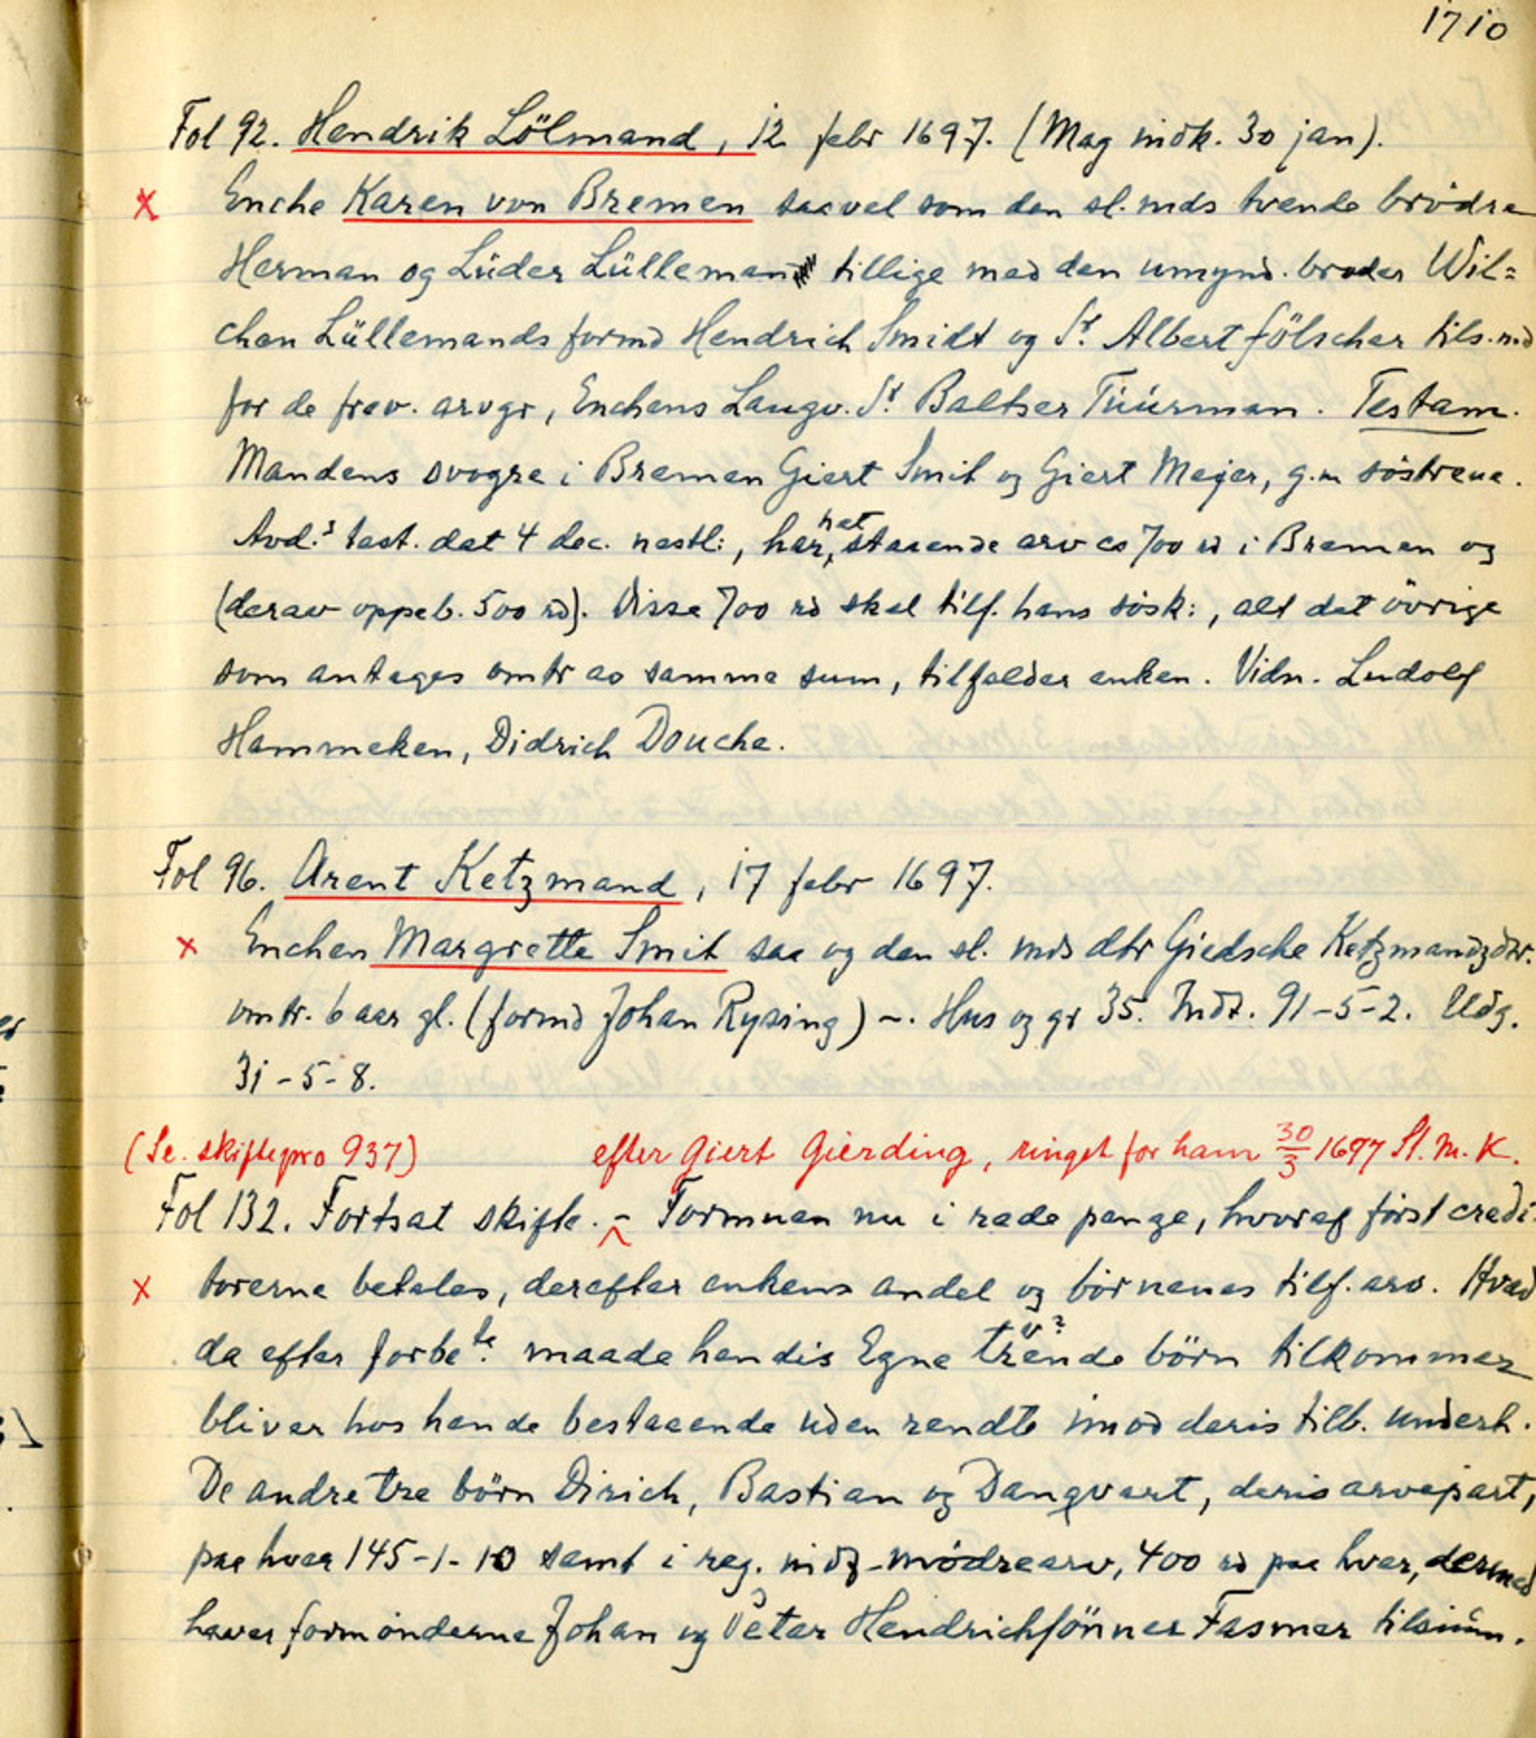 1710
Fol 92. Hendrik Lölmand, 12 febr 1697. (Mag indk. 30 jan).
x Enche Karen von Bremen saavel som den sl. mds tvende brödre
Herman og Lüder Lülleman tillige med den umynd. broder Wil=
chen Lüllemands formd Hendrich Smidt og Sr. Albert fölscher tils.md
for de frav. arvgr, Enchens Laugv. Sr. Baltser Tüürman. Testam.
Mandens svogre i Bremen Giert Smit og Giert Mejer, g.m söstrene.
Avd.s test. dat 4 dec. nestl:, har, hat staaende arv ca 700 rd i Bremen og
(derav oppeb. 500 rd). Disse 700 rd skal tilf. hans sösk:, alt det övrige
som antages omtr ao samme sum, tilfalder enken. Vidn. Ludolf
Hammeken, Didrich Douche.
Fol 96. Arent Ketzmand, 17 febr 1697.
x Enchen Margrette Smit saa og den sl. mds dtr Giedsche Ketzmandzdtr.
omtr. 6 aar gl. (formd Johan Rysing) ~. Hus og gr 35. Indt. 91-5-2. Udg.
31-5-8.
(Se. skiftepro 937) efter Giert Gierding, ringet for ham 30/3 1697 St. M. K.
Fol 132. Fortsat skifte. - Formuen nu i rede penge, hvoraf först credi
x torerne betales, derefter enkens andel og börnenes tilf. arv. Hvad
da efter forbete. maade hendis Egne trende v? börn tilkommer
bliver hos hende bestaaende uden rendte imod deris tilb. underh.
De andre tre börn Dirich, Bastian og Danqvart, deris arvepart,
paa hver 145-1-10 samt i reg. indf mödrearv, 400 rd paa hver, dermed
haver formönderne Johan og Peter Hendrichsönner Fasmer